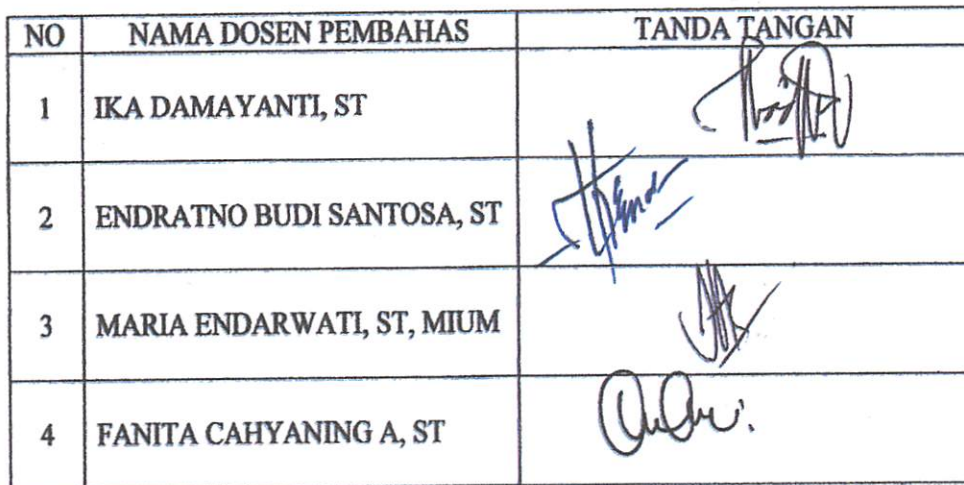 NO NAMA DOSEN PEMBAHAS TANDA TANGAN
1 IKA DAMAYANTI, ST
2 ENDRATNO BUDI SANTOSA, ST
3 MARIA ENDARWATI, ST, MIUM
4 FANITA CAHYANING A, ST